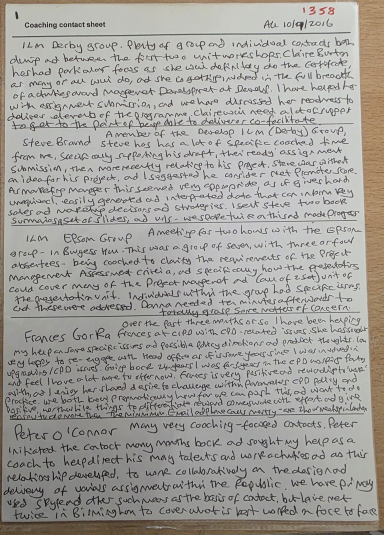 1358
Coaching contact sheet
ALL 10/9/2016
ILM Derby group. Plenty of group and individual contacts both
during and between the first two unit workshops. Claire Burton
has had particular focus as she will definitely do the Certificate
as many or all will do, and she is getting involved in the full breadth
of activities and Management Development at Develop. I have helped her
with assignment submission, and we have discussed her readiness to
deliver elements of the programme. Claire will need a lot of support
to get to the point of being able to deliver or co-facilitate
A member of the Develop ILM (Derby) Group,
Steve Brawnd Steve has has a lot of specific coached time
from me, specifically supporting his draft, then ready assignment
submission, then more recently relating to his project. Steve was without
an idea for his project, and I suggested he consider Net Promoter Score.
As marketing manager this seemed very appropriate, as it gives hard
unequivocal, easily generated and interpreted data that can inform key
sales and marketing decisions and strategies. I sent Steve two book
summaries, set of slides, and we spoke twice on this and made progress
ILM Epsom Group A meeting for two hours with the Epsom
group - in Burgess Hill. This was a group of seven, with three or four
absentees - being coached to clarify the requirements of the Project
Management Assessment criteria, and specifically how the presentations
could cover many of the Project Management unit
the presentation unit. Individuals within the group had specific issues,
and these were addressed. Donna needed ten minutes afterwards to
totally grasp some matters of concern
Over the past three months or so I have been helping
Frances Gorka Frances at CIPD with CPD-related issues. She has sought
my help on some specific issues and possible policy directions and product thoughts. I am
very happy to re-engage with Head Office as it is some years since I was involved in
CPD issues. Going back 24 years I was for 5 years the CPD
and feel I have a lot more to offer now. Frances is very positive and rewarding to work
with and I enjoy her shared desire to challenge within parameters CPD policy and
practice. We both know pragmatically how far we can push this, and want to do
positive, worthwhile things to
Peter O'Connor Many very coaching-focused contacts. Peter
initiated the contact many months back and sought my help as a
coach to help direct his many talents and work activities and as this
relationship developed, to work collaboratively on the design and
delivery of various assignments within the Republic. We have primarily
used Skype and other such means as the basis of contact, but have met
twice in Birmingham to cover what is best worked on face to face